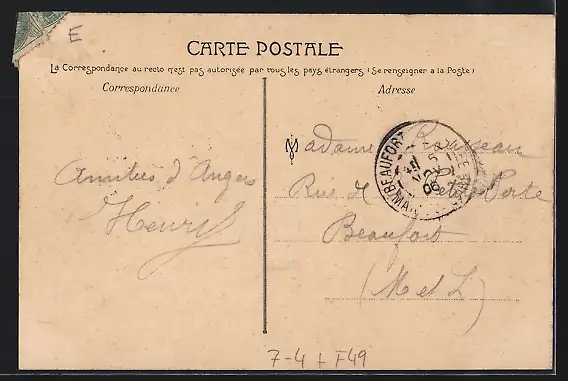 E
CARTE POSTALE
La Correspondance au recto n'est pas autorisée par tous les pays étrangers (Se renseigner a la Poste)
Correspondance
Adresse
Amitiés d'Angers
Henry
Madame Rousseau
Rue Verte
Beaufort
(M et L)
BEAUFORT
7-4 + F49